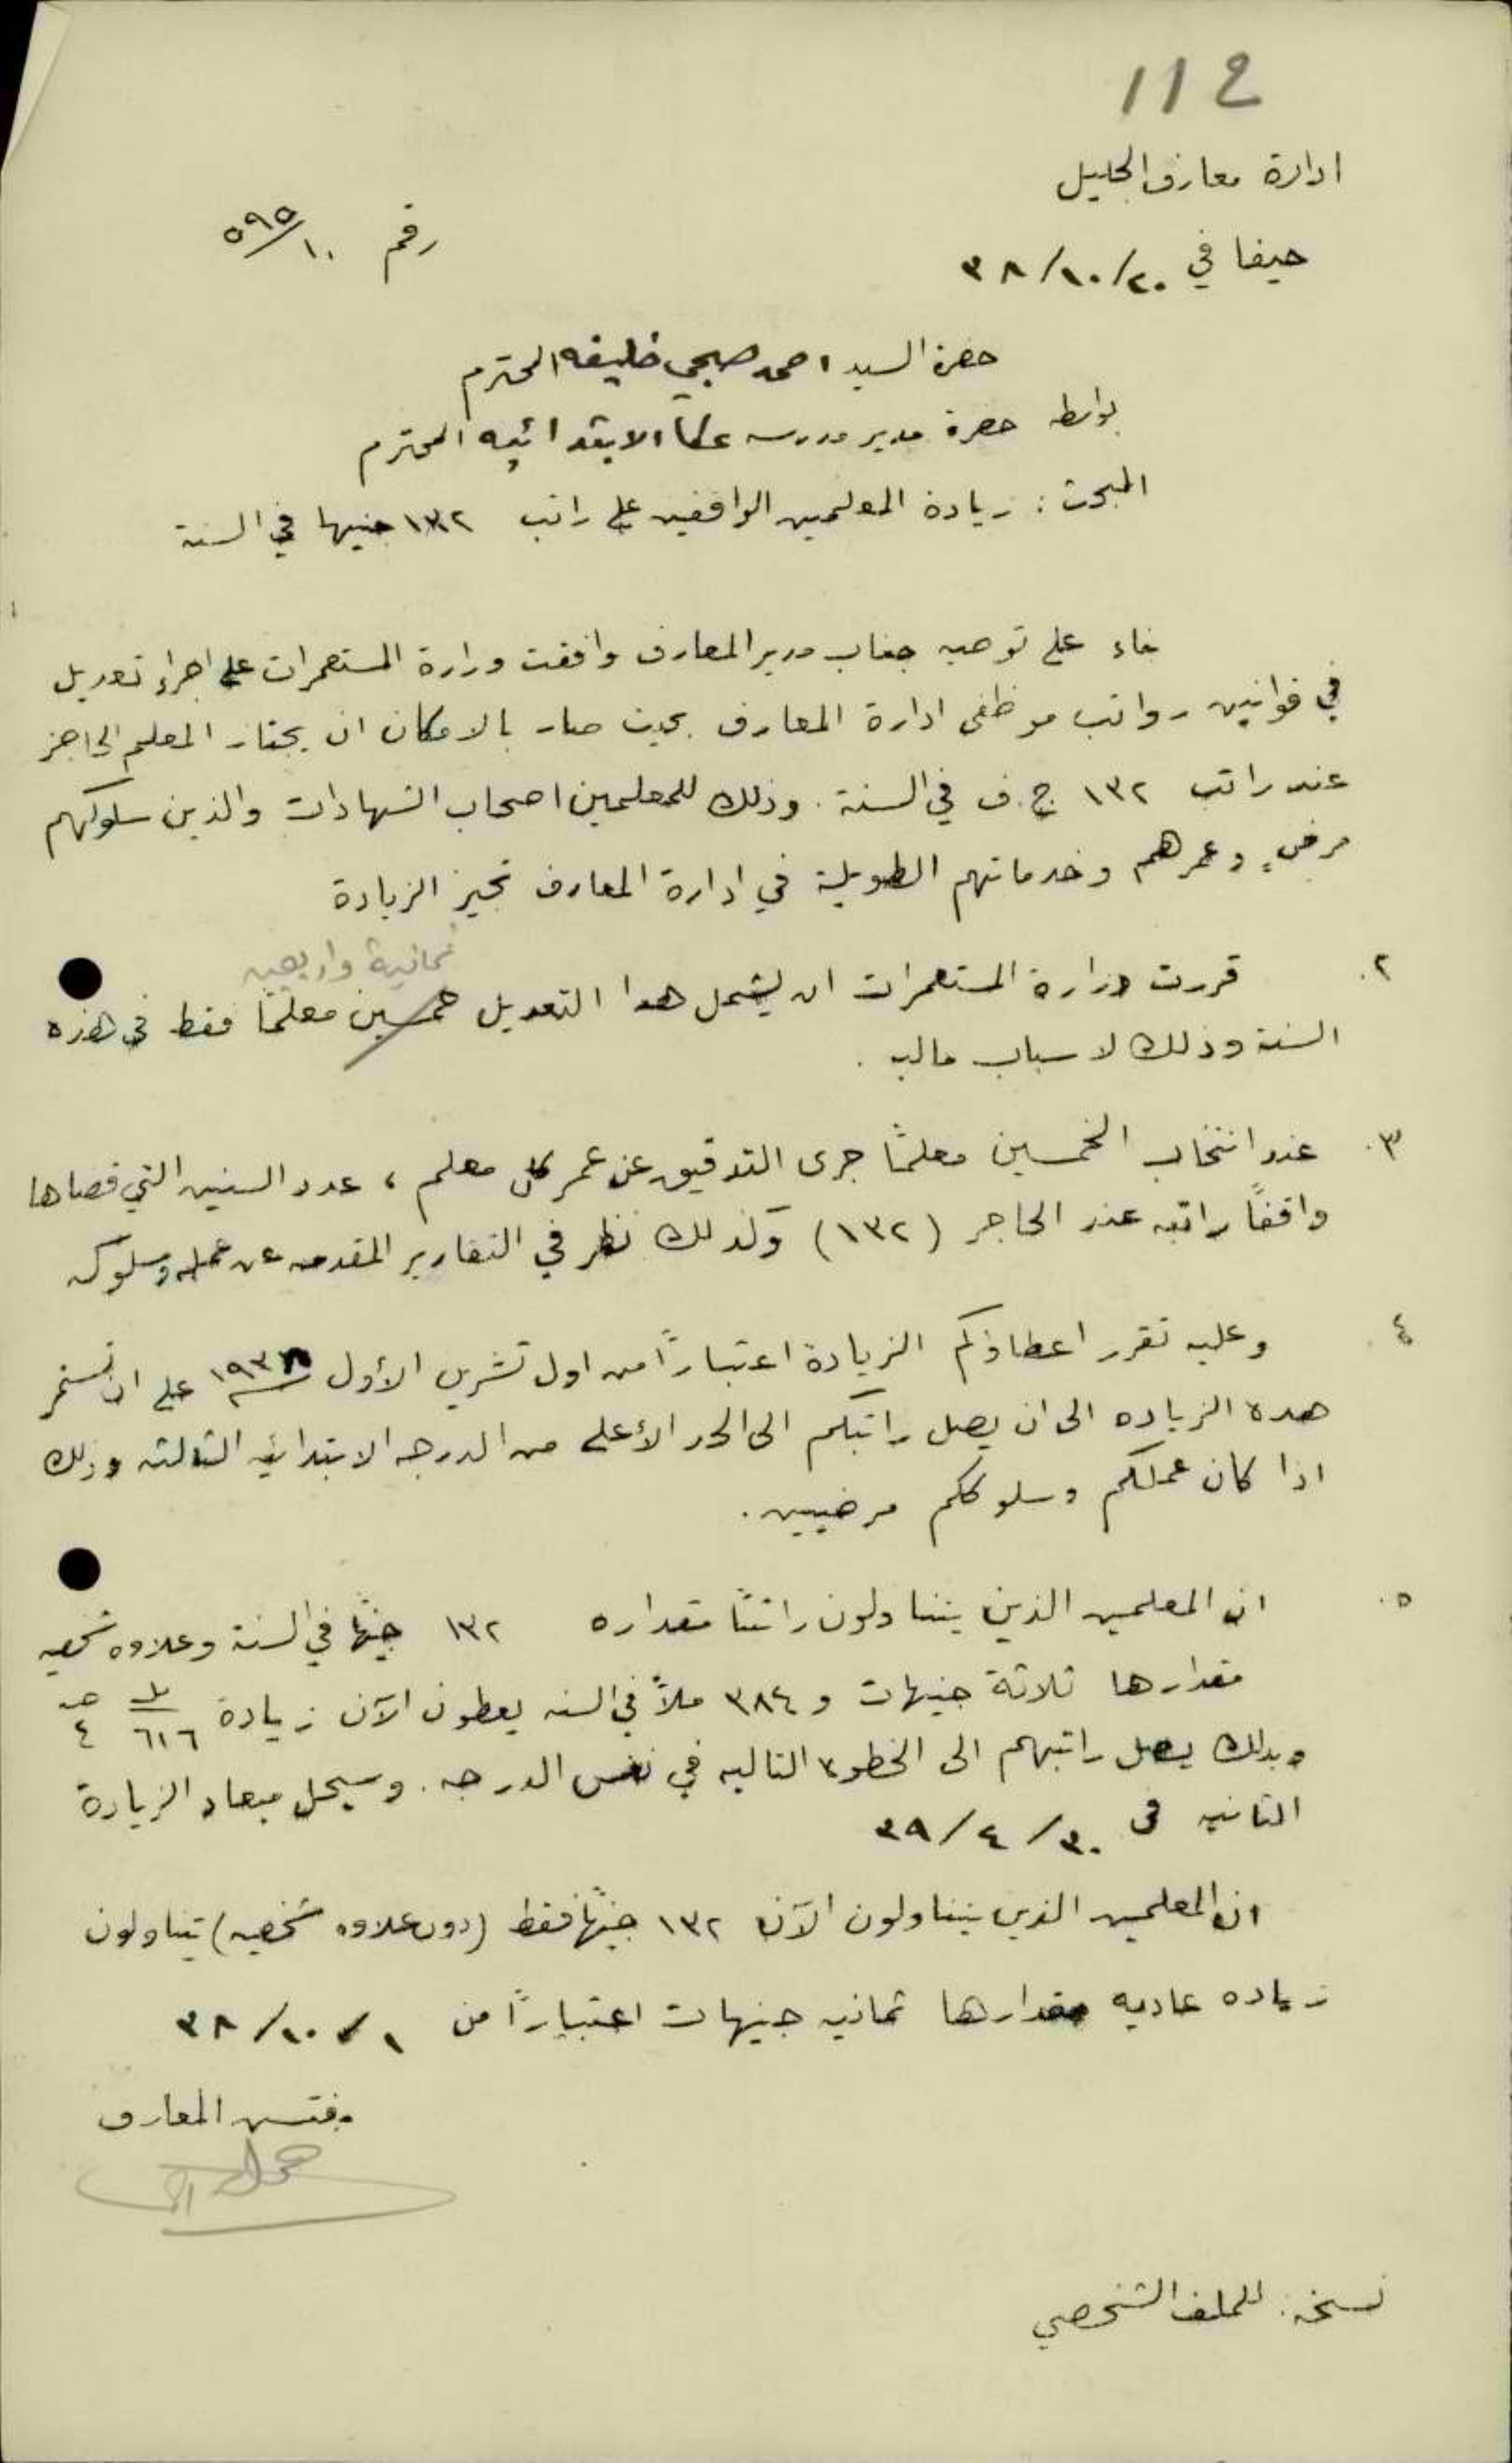 112
ادارة معارف الجليل
حيفا في ٢٠/١٠/٣٨
رقم ١٠/٥٩٥
حضرة السيد احمد صبحي خليفه المحترم
بواسطه حضرة مدير مدرسه عكا الابتدائيه المحترم
المبحث : زيادة المعلمين الواقفين على راتب ١٣٢ جنيها في السنة
بناء على توصيه جناب مدير المعارف وافقت وزارة المستعمرات على اجراء تعديل
في قوانين رواتب موظفى ادارة المعارف بحيث صار بالامكان ان يجتاز المعلم الحاجز
عند راتب ١٣٢ ج. ف في السنة . وذلك للمعلمين اصحاب الشهادات والذين سلوكهم
مرضٍ وعمرهم وخدماتهم الطويلة في ادارة المعارف تجيز الزيادة
ثمانية واربعين
٢. قررت وزارة المستعمرات ان يشمل هذا التعديل خمسين معلمًا فقط في هذه
السنة وذلك لاسباب ماليه .
٣. عند انتخاب الخمسين معلمًا جرى التدقيق عن عمر كل معلم ، عدد السنين التي قضاها
واقفًا راتبه عند الحاجز (١٣٢) وكذلك نظر في التقارير المقدمه عن عمله وسلوكه
٤. وعليه تقرر اعطاؤكم الزيادة اعتبارًا من اول تشرين الأول ١٩٣٨ على ان تستمر
هذه الزياده الى ان يصل راتبكم الى الحد الأعلى من الدرجه الابتدائيه الثالثه وذلك
اذا كان عملكم وسلوككم مرضيين .
٥. ان المعلمين الذين يتناولون راتبًا مقداره ١٣٢ جنيهًا في السنة وعلاوه شخصيه
مقدارها ثلاثة جنيهات و ٣٨٤ ملاً في السنه يعطون الآن زيادة ٦١٦ ٤
وبذلك يصل راتبهم الى الخطوه التاليه في نفس الدرجه . وسيحل ميعاد الزيارة
الثانيه فى ٣٠/٤/٣٩
ان المعلمين الذين يتناولون الآن ١٣٢ جنيهًا فقط (دون علاوه شخصيه) يتناولون
زياده عاديه مقدارها ثمانيه جنيهات اعتبارًا من ١/١٠/٣٨
مفتش المعارف
نسخة : للملف الشخصي